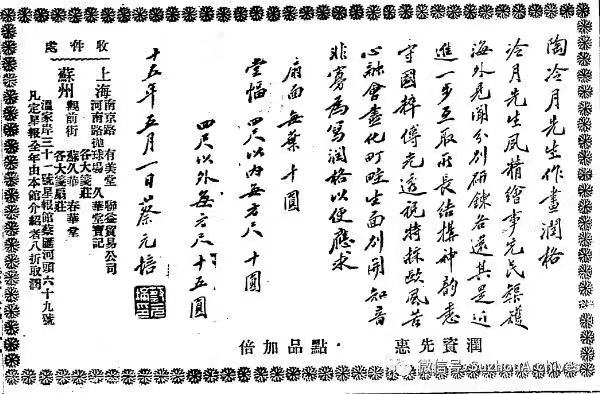 陶冷月先生作畫潤格
冷月先生夙精繪事先民榘矱
海外見聞分別研鍊各造其是近
進一步互取所長結構神韵悉
守國粹傳光透視特採歐風苦
心融會畫化町畦生面別開知音
非寡為寫潤格以便應求
扇面每葉十圓
堂幅四尺以內每方尺十圓
四尺以外每方尺十五圓
十五年五月一日蔡元培
潤資先惠
點品加倍
收件處
上海
南京路 有美堂 聯益貿易公司
河南路拋球場 久華堂寶記
各大箋扇莊
蘇州
觀前街 蘇久華 春華堂
各大箋扇莊
溫家岸三十一號星報館蔡匯河頭六十九號
凡定星報全年由本館介紹者八折取潤
微信号: SuzhouArchives